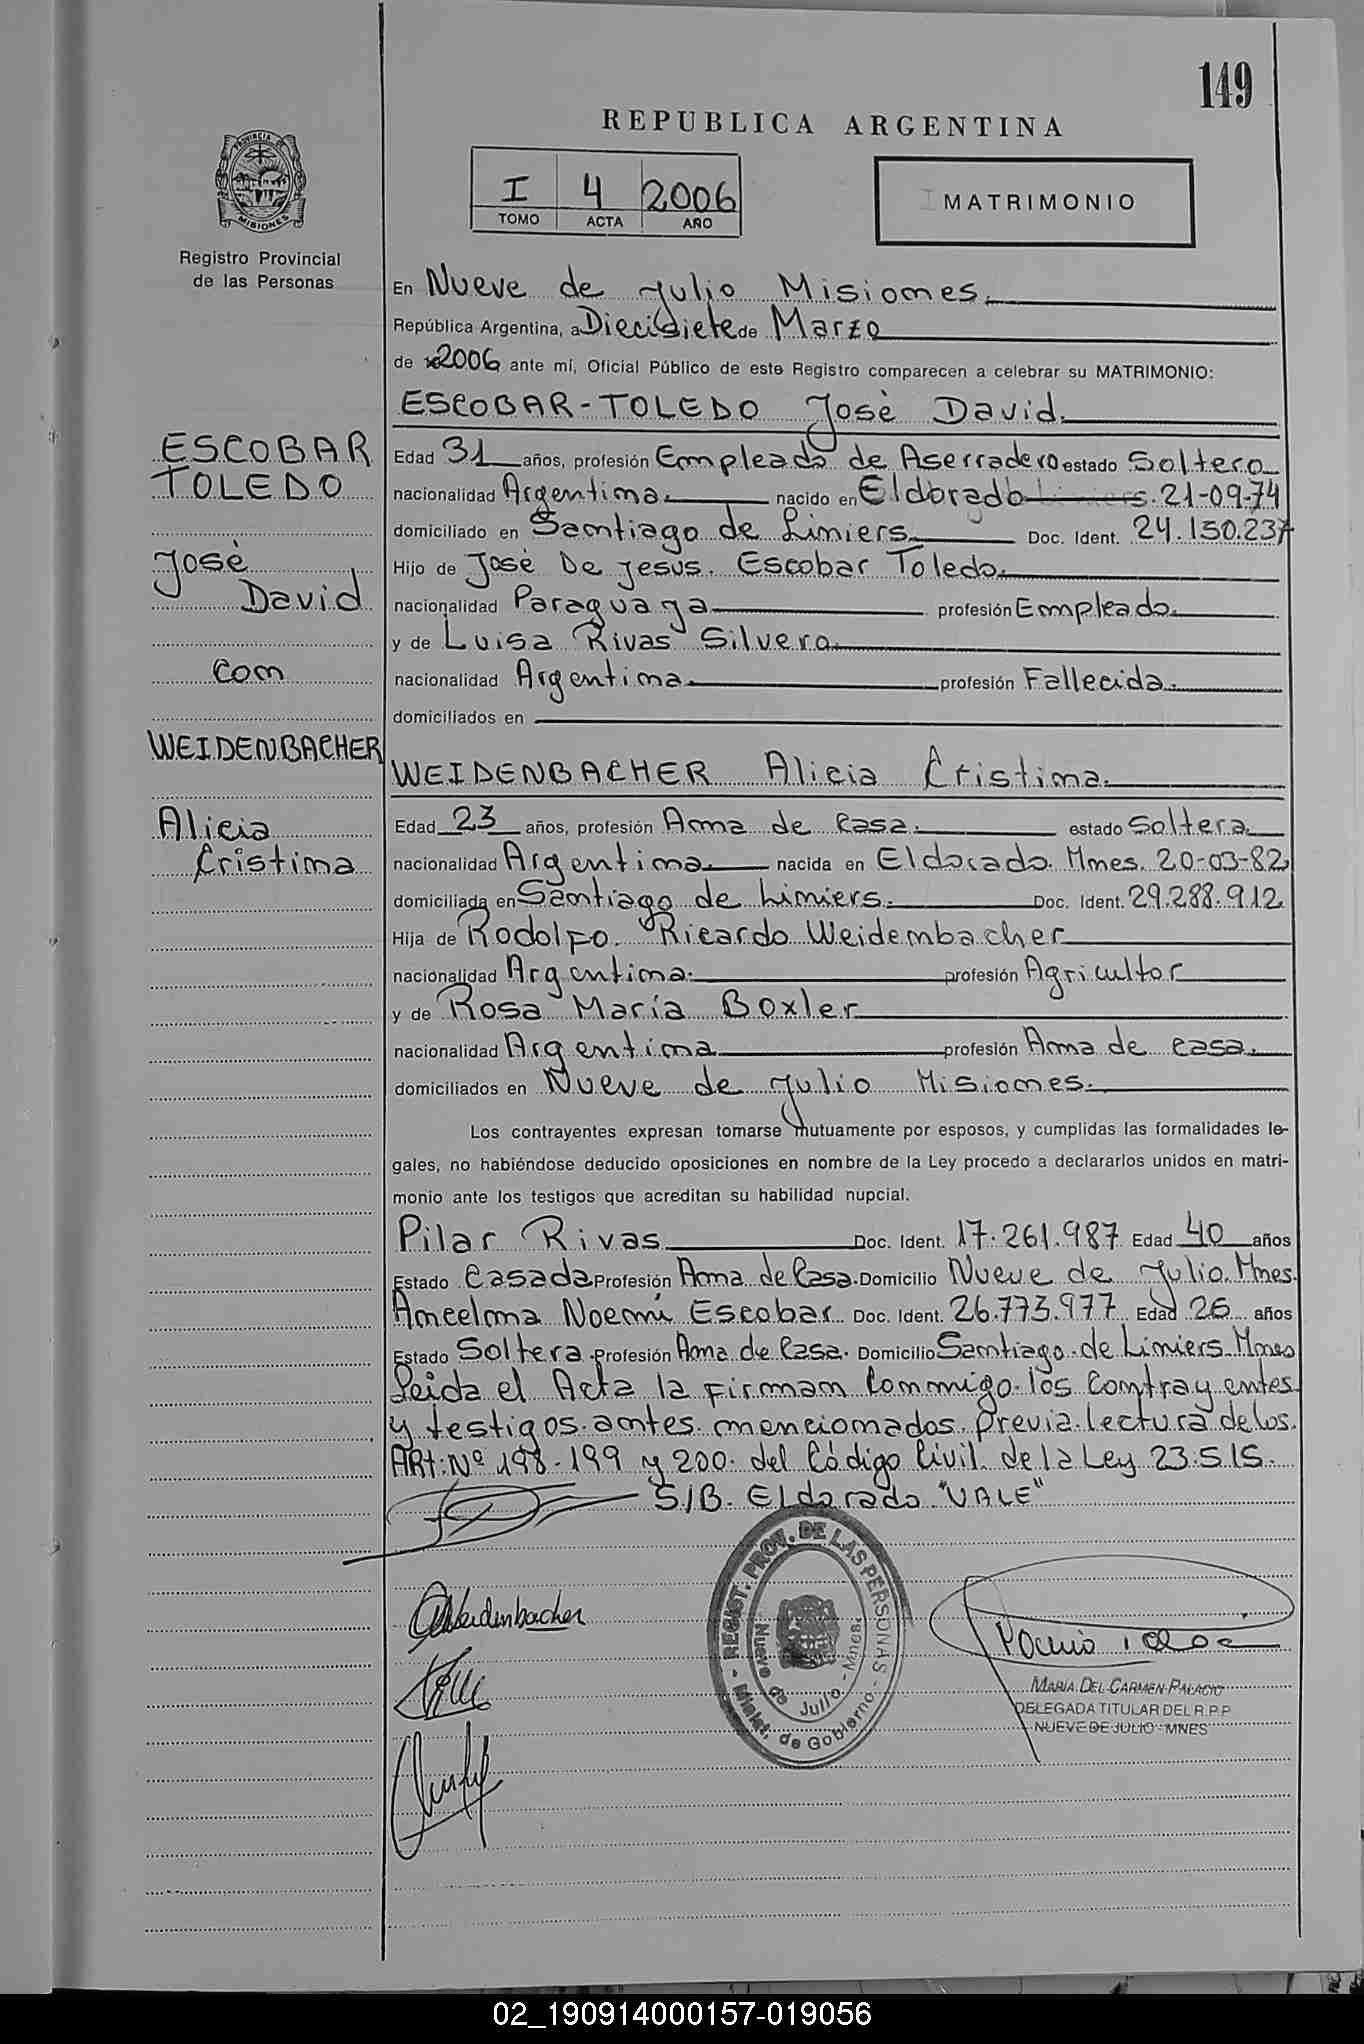 149
REPUBLICA ARGENTINA
PROVINCIA DE
MISIONES
Registro Provincial
de las Personas
I 4 2006
TOMO ACTA AÑO
MATRIMONIO
En Nueve de Julio Misiones.
República Argentina, a Diecisiete de Marzo
de 2006 ante mí, Oficial Público de este Registro comparecen a celebrar su MATRIMONIO:
ESCOBAR-TOLEDO José David.
ESCOBAR
TOLEDO
José
David
Con
WEIDENBACHER
Alicia
Cristina
Edad 31 años, profesión Empleado de Aserradero estado Soltero
nacionalidad Argentina. nacido en Eldorado 21-09-74
domiciliado en Santiago de Liniers. Doc. Ident. 24.150.237
Hijo de José De Jesus. Escobar Toledo.
nacionalidad Paraguaya profesión Empleado.
y de Luisa Rivas Silvero.
nacionalidad Argentina. profesión Fallecida.
domiciliados en
WEIDENBACHER Alicia Cristina.
Edad 23 años, profesión Ama de Casa. estado Soltera.
nacionalidad Argentina. nacida en Eldorado. Mnes. 20-03-82
domiciliada en Santiago de Liniers. Doc. Ident. 29.288.912
Hija de Rodolfo. Ricardo Weidembacher
nacionalidad Argentina. profesión Agricultor
y de Rosa María Boxler
nacionalidad Argentina profesión Ama de casa.
domiciliados en Nueve de Julio Misiones.
Los contrayentes expresan tomarse mutuamente por esposos, y cumplidas las formalidades le-
gales, no habiéndose deducido oposiciones en nombre de la Ley procedo a declararlos unidos en matri-
monio ante los testigos que acreditan su habilidad nupcial.
Pilar Rivas Doc. Ident. 17.261.987 Edad 40 años
Estado Casada Profesión Ama de Casa. Domicilio Nueve de Julio. Mnes.
Ancelma Noemí Escobar. Doc. Ident. 26.773.977 Edad 26 años
Estado Soltera. Profesión Ama de Casa. Domicilio Santiago de Liniers. Mnes
Leida el Acta la firman Conmigo los Contrayentes
y testigos antes mencionados. Previa lectura de los.
ARt: Nº 198-199 y 200. del Código Civil. de la Ley 23.515.
S/B. Eldorado "VALE"
Weidenbacher
- REGIST. PROV. DE LAS PERSONAS -
Minist. de Gobierno
Nueve de Julio - Mnes.
MARIA DEL CARMEN PALACIO
DELEGADA TITULAR DEL R.P.P
NUEVE DE JULIO - MNES
02_190914000157-019056